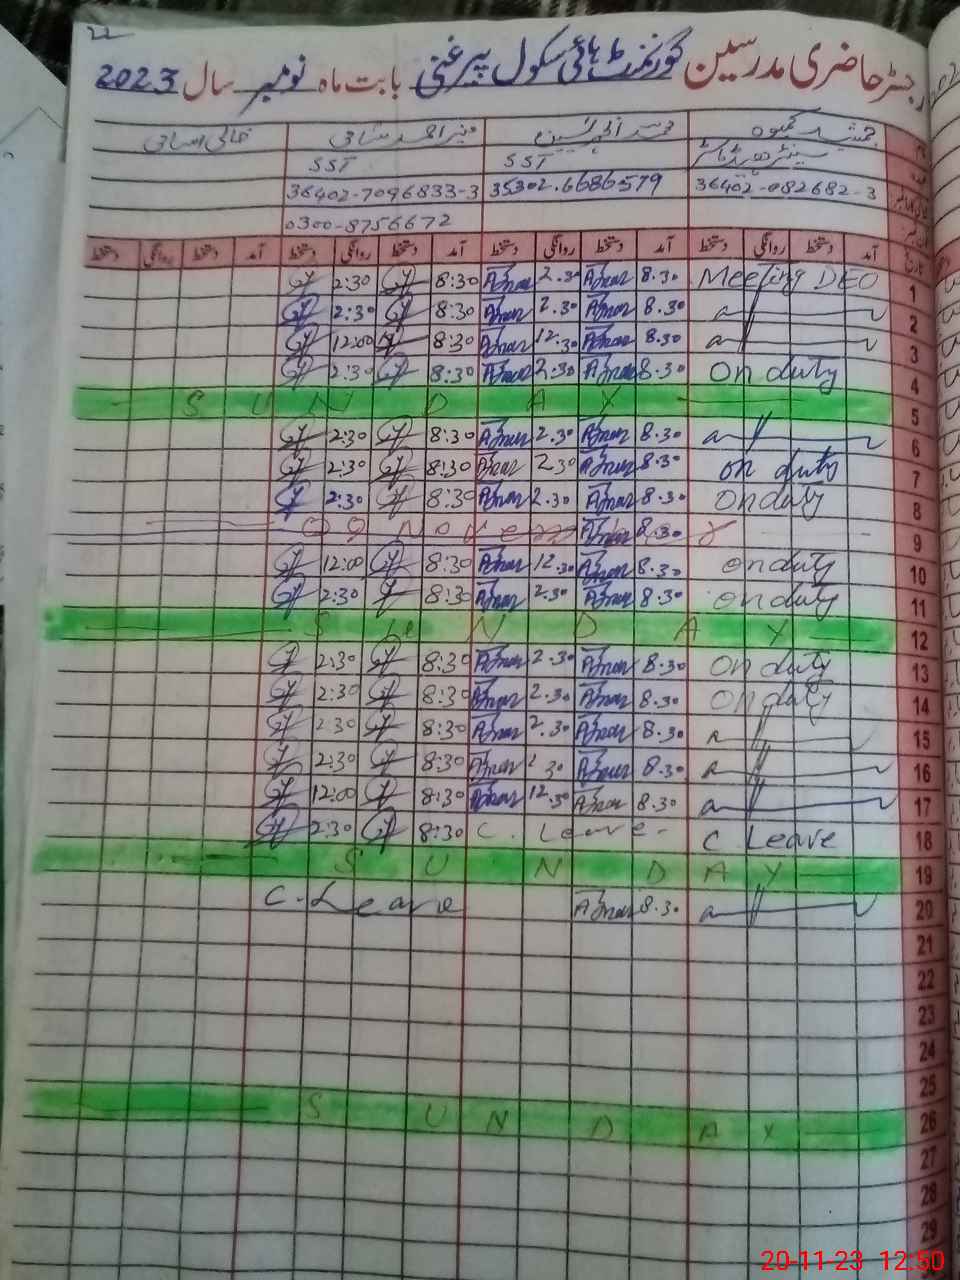 22
رجسٹر حاضری مدرسین گورنمنٹ ہائی سکول پیر غنی بابت ماہ نومبر سال 2023
جمشید کمبوہ محمد انجم یٰسین منیر احمد خالی اسامی
SST SST
36402-082682-3 35302.6686579 36402-7096833-3
0300-8756672
تاریخ آمد دستخط روانگی دستخط آمد دستخط روانگی دستخط آمد دستخط روانگی دستخط آمد دستخط روانگی دستخط
1 Meeting DEO 8.30 2.30 8:30 2:30
2 8.30 2.30 8:30 2:30
3 8.30 12.30 8:30 12:00
4 On duty 8.30 2.30 8:30 2:30
5 SUNDAY
6 8.30 2.30 8:30 2:30
7 on duty 8.30 2.30 8:30 2:30
8 On duty 8.30 2.30 8:30 2:30
9 8.30 09 November
10 on duty 8.30 12.30 8:30 12:00
11 on duty 8.30 2.30 8:30 2:30
12 SUNDAY
13 On duty 8.30 2.30 8:30 2:30
14 On duty 8.30 2.30 8:30 2:30
15 8.30 2.30 8:30 2:30
16 8.30 30 8:30 2:30
17 8.30 12.30 8:30 12:00
18 C Leave C. Leave 8:30 2:30
19 SUNDAY
20 8.30 C. Leave
21
22
23
24
25
26 SUNDAY
27
28
29
20-11-23 12:50